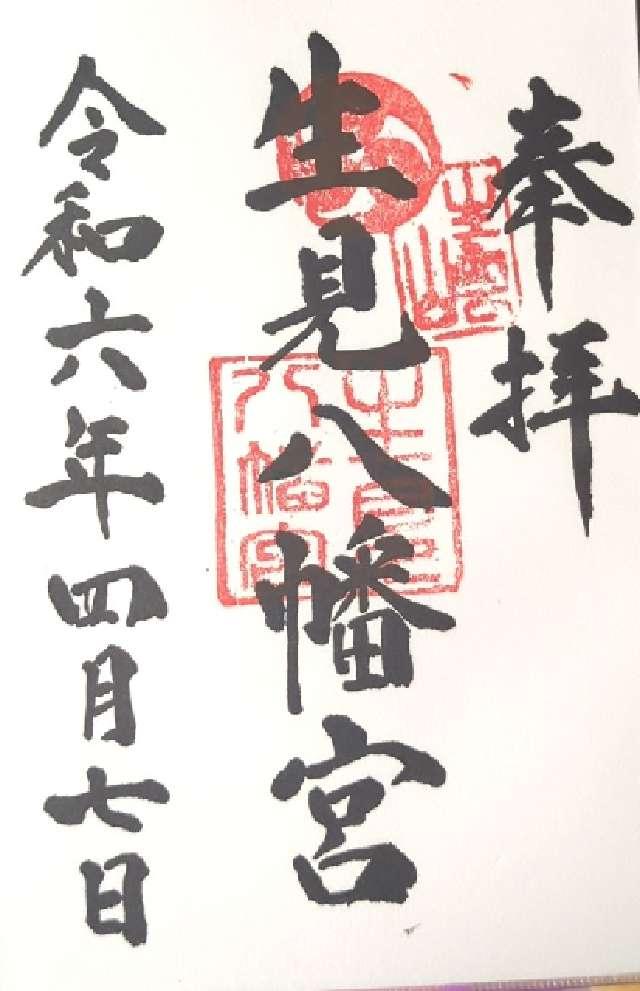 奉拝
生見八幡宮
令和六年四月七日
生見
八幡宮